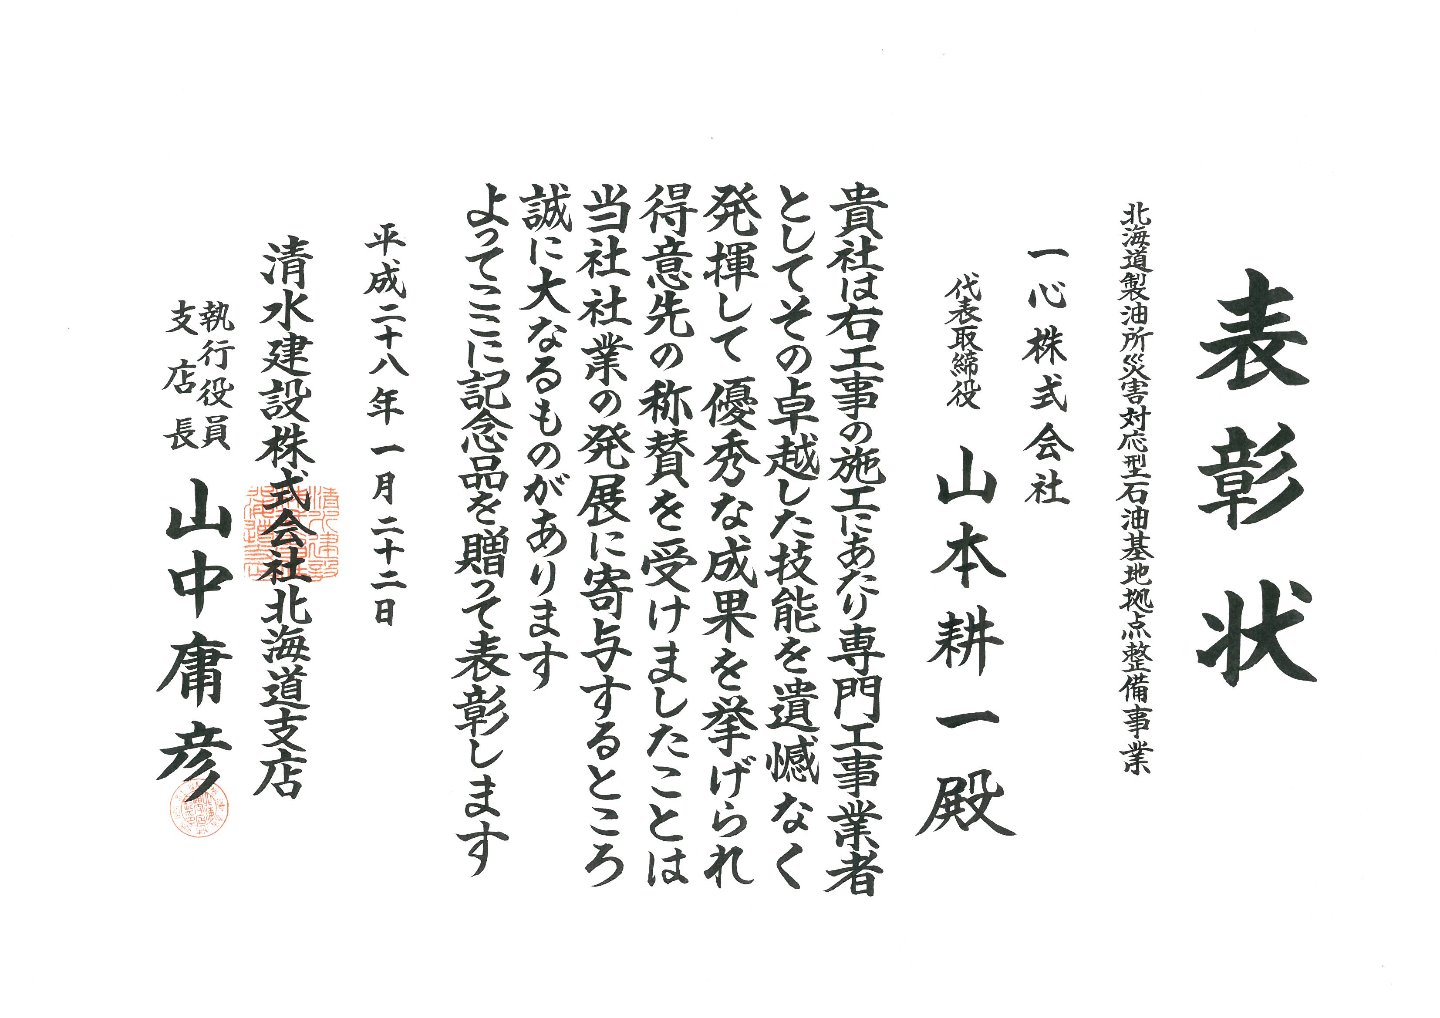 表彰状
北海道製油所災害対応型石油基地拠点整備事業
一心株式会社
代表取締役 山本耕一殿
貴社は右工事の施工にあたり専門工事業者
としてその卓越した技能を遺憾なく
発揮して優秀な成果を挙げられ
得意先の称賛を受けましたことは
当社社業の発展に寄与するところ
誠に大なるものがあります
よってここに記念品を贈って表彰します
平成二十八年一月二十二日
清水建設株式会社北海道支店
執行役員
支店長 山中庸彦